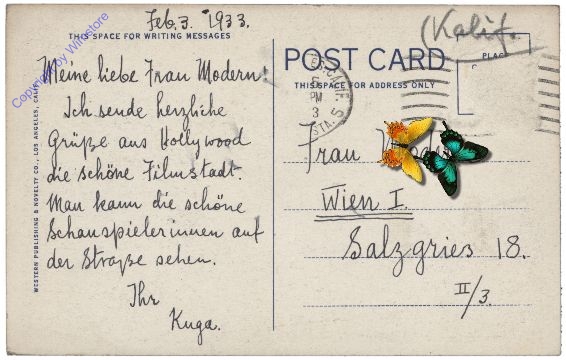 Feb. 3. 1933.
THIS SPACE FOR WRITING MESSAGES
Meine liebe Frau Modern!
Ich sende herzliche
Grüße aus Hollywood
die schöne Filmstadt.
Man kann die schöne
Schauspielerinnen auf
der Straße sehen.
Ihr
Kuga.
WESTERN PUBLISHING & NOVELTY CO., LOS ANGELES, CALIF.
Copyright by Winstore
(Kalif.
POST CARD
PLACE
THIS SPACE FOR ADDRESS ONLY
PM
3
STA. 5
Frau
Wien I.
Salzgries 18.
II/3.